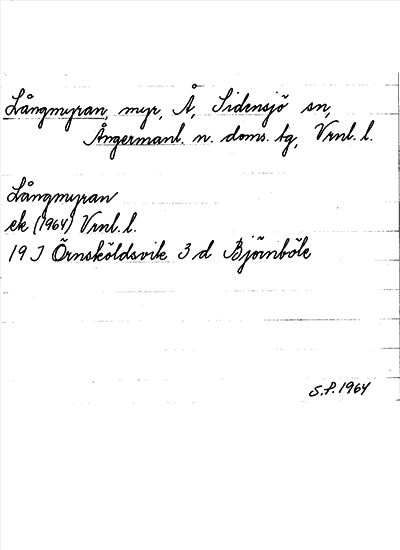 Långmyran, myr, Å, Sidensjö sn,
Ångermanl. n. doms. tg, Vrnl. l.
Långmyran
ek (1964) Vrnl. l.
19 J Örnsköldsvik 3 d Björnböle
S.P. 1964